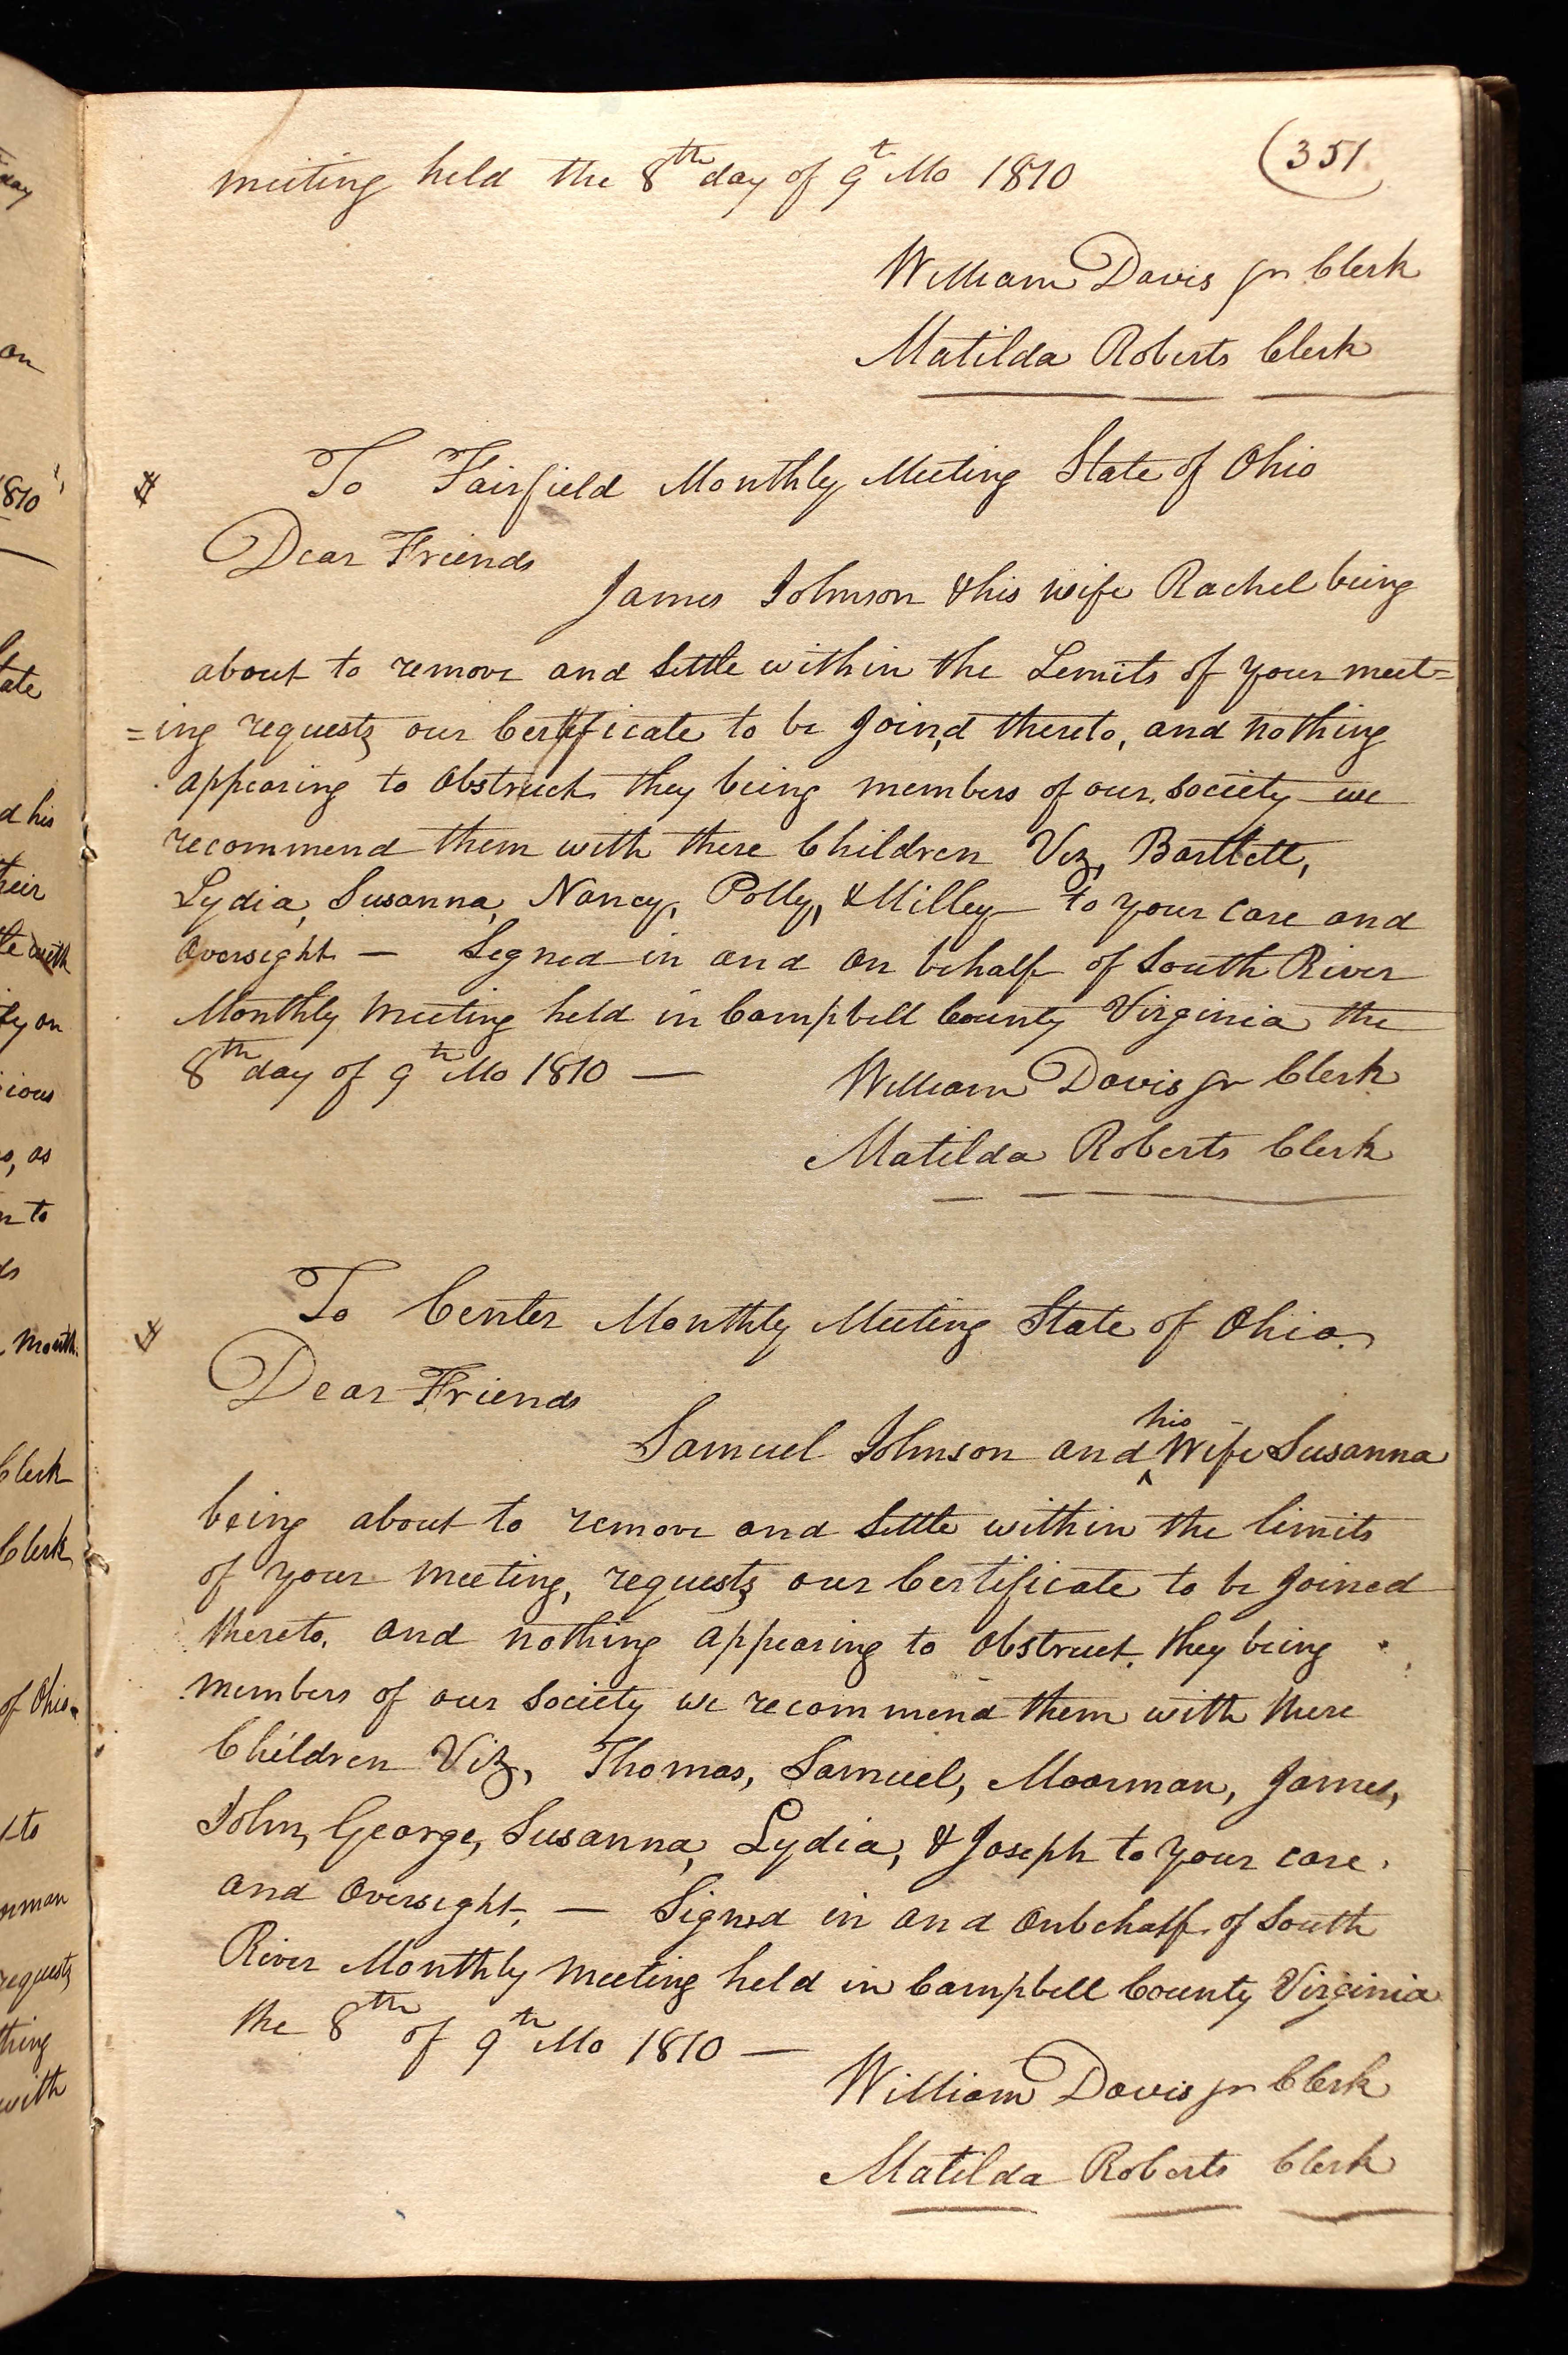 (351.
meeting held the 8th day of 9th Mo 1810
William Davis Jr Clerk
Matilda Roberts Clerk
To Fairfield Monthly Meeting State of Ohio
Dear Friends
James Johnson & his wife Rachel being
about to remove and Settle within the Lemits of your meet=
=ing requests our Certificate to be Joind thereto, and nothing
appearing to obstruct they being members of our Society we
recommend them with there Children Viz, Bartlett,
Lydia, Susanna, Nancy, Polly, & Milley to your care and
Oversight — Segned in and on behalf of South River
Monthly Meeting held in Campbell County Virginia the
8th day of 9th Mo 1810 —
William Davis Jr Clerk
Matilda Roberts Clerk
To Center Monthly Meeting State of Ohio.
Dear Friends
Samuel Johnson and his Wife Susanna
being about to remove and Settle within the limits
of your meeting, requests our Certificate to be Joined
thereto. and nothing appearing to obstruct, they being
members of our Society we recommend them with there
Children Viz, Thomas, Samuel, Moorman, James,
John, George, Susanna, Lydia, & Joseph to your care
and Oversight, — Signed in and On behalf of South
River Monthly Meeting held in Campbell County Virginia
the 8th of 9th Mo 1810 —
William Davis Jr Clerk
Matilda Roberts Clerk